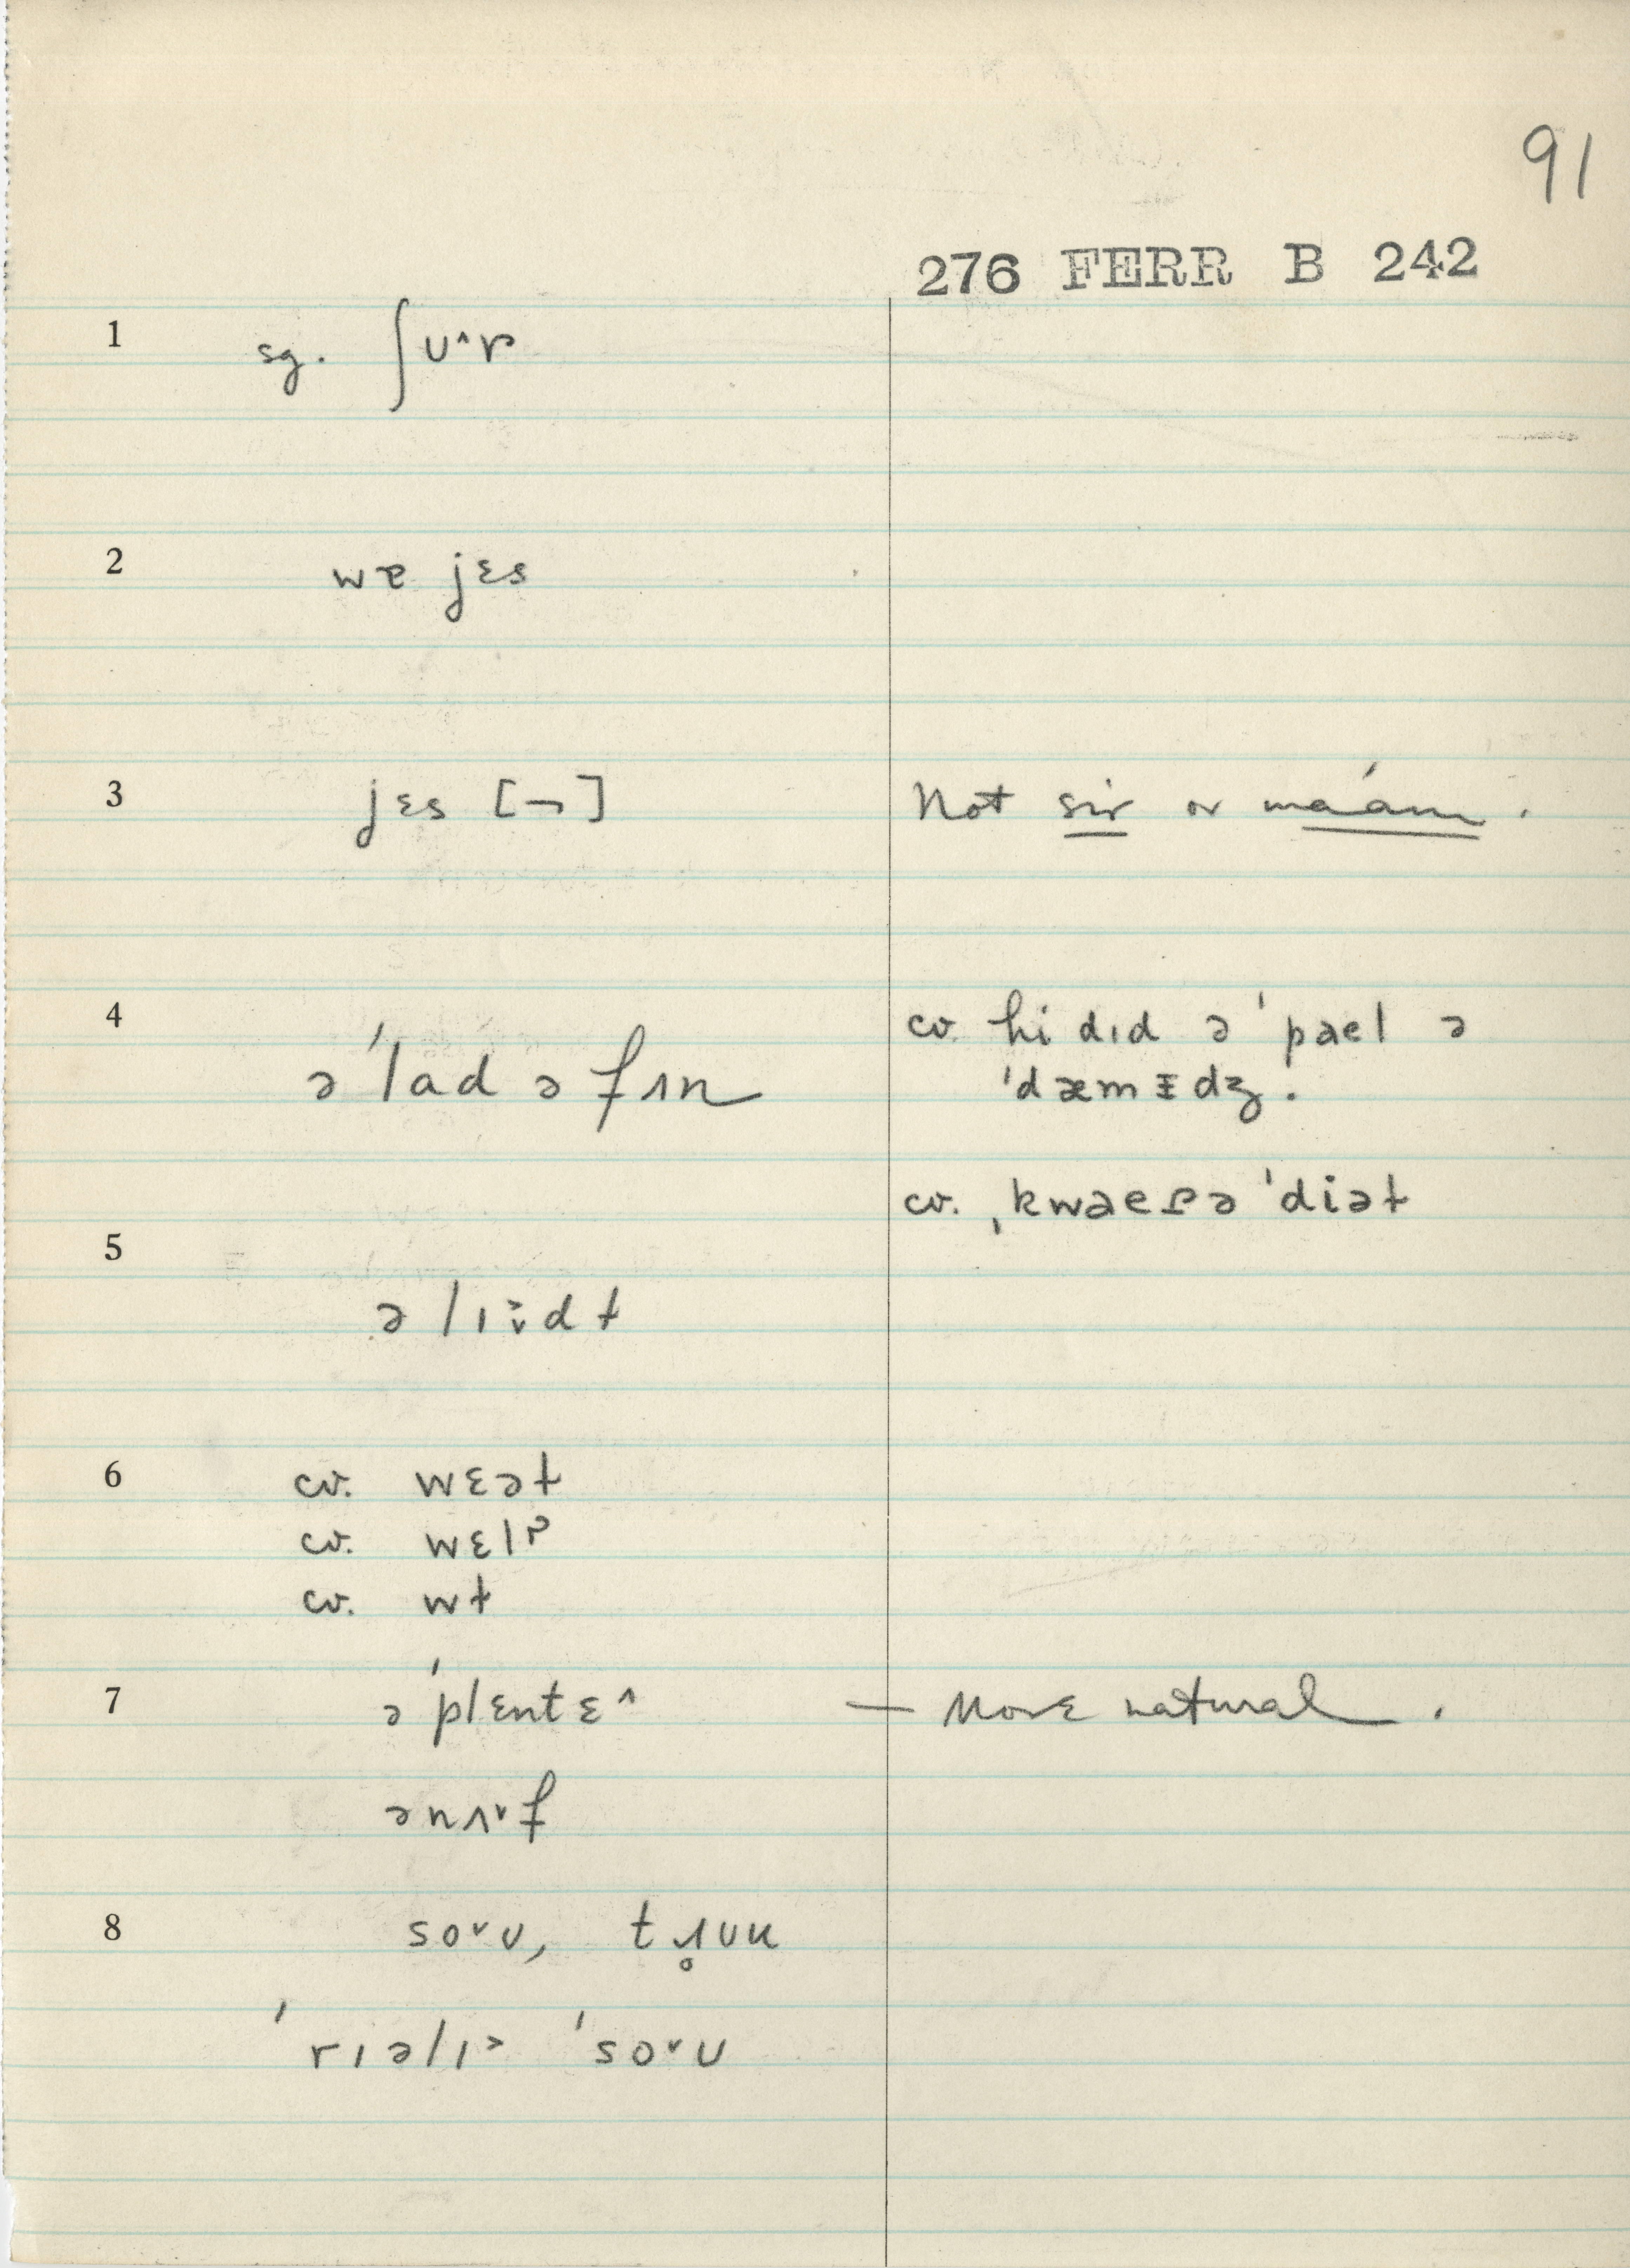 91
276 FERR B 242
1 sg. ʃʊ˄ɚ
2 wɐ jɛs
3 jɛs [¬] Not sir or ma'am.
4 ə ˈlad ə fɪn cv. hi dɪd ə ˈpaɛl ə
ˈdæmɪdʒ.
cv. ˌkwaɛɾə ˈdiəɫ
5 ə lɪ>˅dɫ
6 cv. wɛəɫ
cv. wɛlɚ
cv. wɫ
7 ə ˈplɛntɛ˄ — More natural.
ənʌ˅f
8 so˅ʊ, tɹ̥ʊu
ˈrɪəlɪ> ˈso˅ʊ